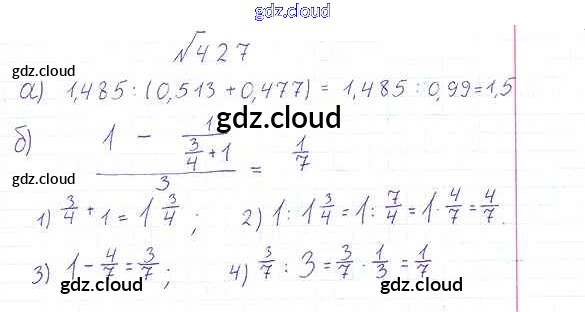 gdz.cloud
№427
gdz.cloud
а) 1,485 : (0,513 + 0,477) = 1,485 : 0,99 = 1,5
gdz.cloud
б) (1 - 1/(3/4 + 1))/3 = 1/7
gdz.cloud
1) 3/4 + 1 = 1 3/4 ; 2) 1 : 1 3/4 = 1 : 7/4 = 1 · 4/7 = 4/7.
gdz.cloud
3) 1 - 4/7 = 3/7 ; 4) 3/7 : 3 = 3/7 · 1/3 = 1/7
gdz.cloud gdz.cloud